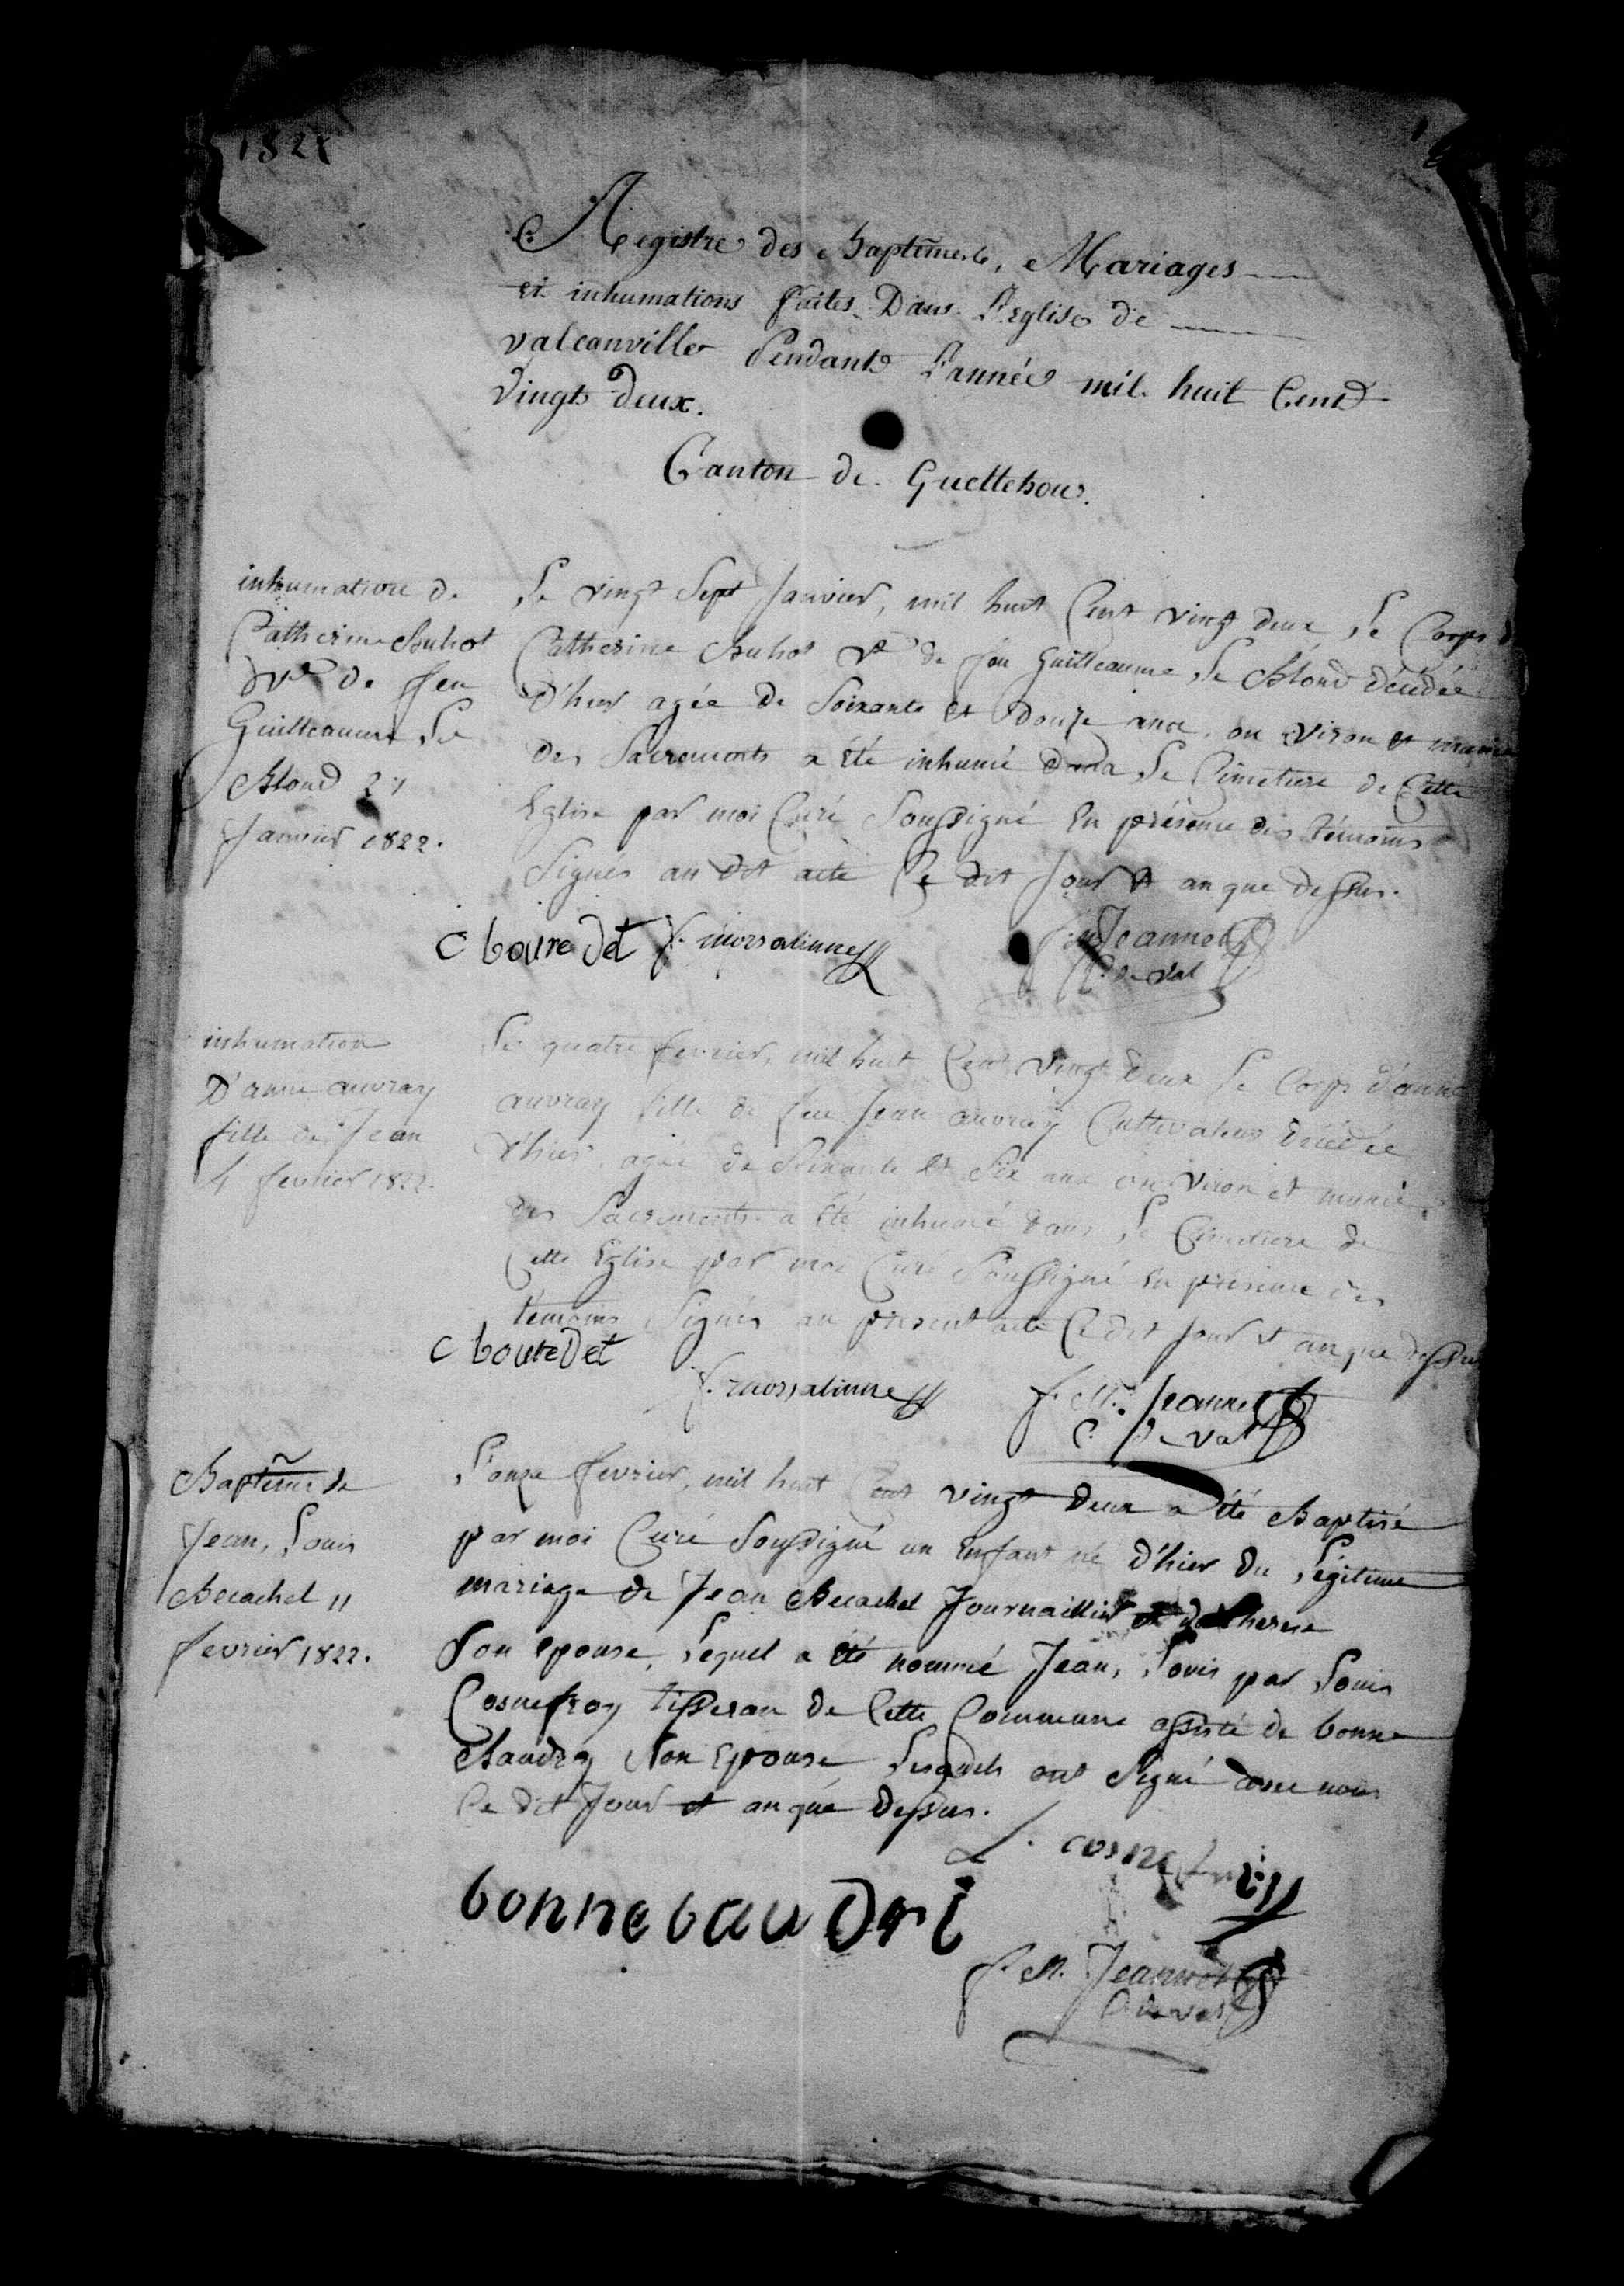 1822
Registre des Baptêmes, Mariages
et inhumations faites Dans L'Eglise de
valcanville Pendant L'année mil huit Cent
vingt Deux.
Canton de Quettehou.
inhumation de
Catherine Buhot
Vve de feu
Guilleaume Le
Blond 27
Janvier 1822.
Le vingt Sept Janvier, mil huit Cent vingt deux, Le Corps
Catherine Buhot Ve de feu Guilleaume Le Blond décédée
D'hier agée de Soixante et Douze ans ou viron et munie
des Sacrements a été inhumé dans Le Cimetiere de Cette
Eglise par moi Curé Soussigné En présence des témoins
Signés au dit acte Ce dit Jour et an que dessus.
C bouredet f. morsalinne
Jeannet
C. de val
inhumation
D'anne auvray
fille de Jean
4 fevrier 1822.
Le quatre fevrier, mil huit Cent vingt deux Le Corps d'anne
auvray fille de feu Jean auvray Cultivateur décédée
d'hier, agée de Soixante et Six ans ou viron et munie
des Sacrements a été inhumé dans Le Cimetiere de
Cette Eglise par moi Curé Soussigné En présence des
témoins Signés au présent acte Ce dit Jour et an que dessus
C bouredet
f. morsalinne
f. M. Jeannet
C. De val
Baptême de
Jean, Louis
Becachel 11
fevrier 1822.
L'onze fevrier, mil huit Cent vingt deux a été Baptisé
par moi Curé Soussigné un Enfant né d'hier du Légitime
mariage de Jean Becachel Journaillier et de therese
Son epouse, Lequel a été nommé Jean, Louis par Louis
Cosnefroy tisseran de Cette Commune assisté de bonne
Baudry Son Epouse Lesquels ont Signé avec nous
Ce dit Jour et an que Dessus.
L. cosnefroy
bonne baudri
f. M. Jeannet
C. de val